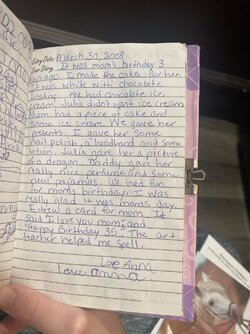 Entry Date: March 30, 2008
Dear Diary, It was mom's birthday 3
days ago. I made the cake for her.
It was white with chocolate
frosting. We had chocolate ice
cream. Julia didn't want ice cream.
Mom had a piece of cake and
some ice cream. We gave her
presents. I gave her some
nail polish, a headband and some
lotion. Julia gave her a picture
of a dragon. Daddy gave her
really nice perfume and some
new pajamas. We had fun
for mom's birthday. I was
really glad it was mom's day.
I drew a card for mom. It
said I love you mom and
"Happy Birthday 35". The art
teacher helped me spell.
Love Anna
Love Anna